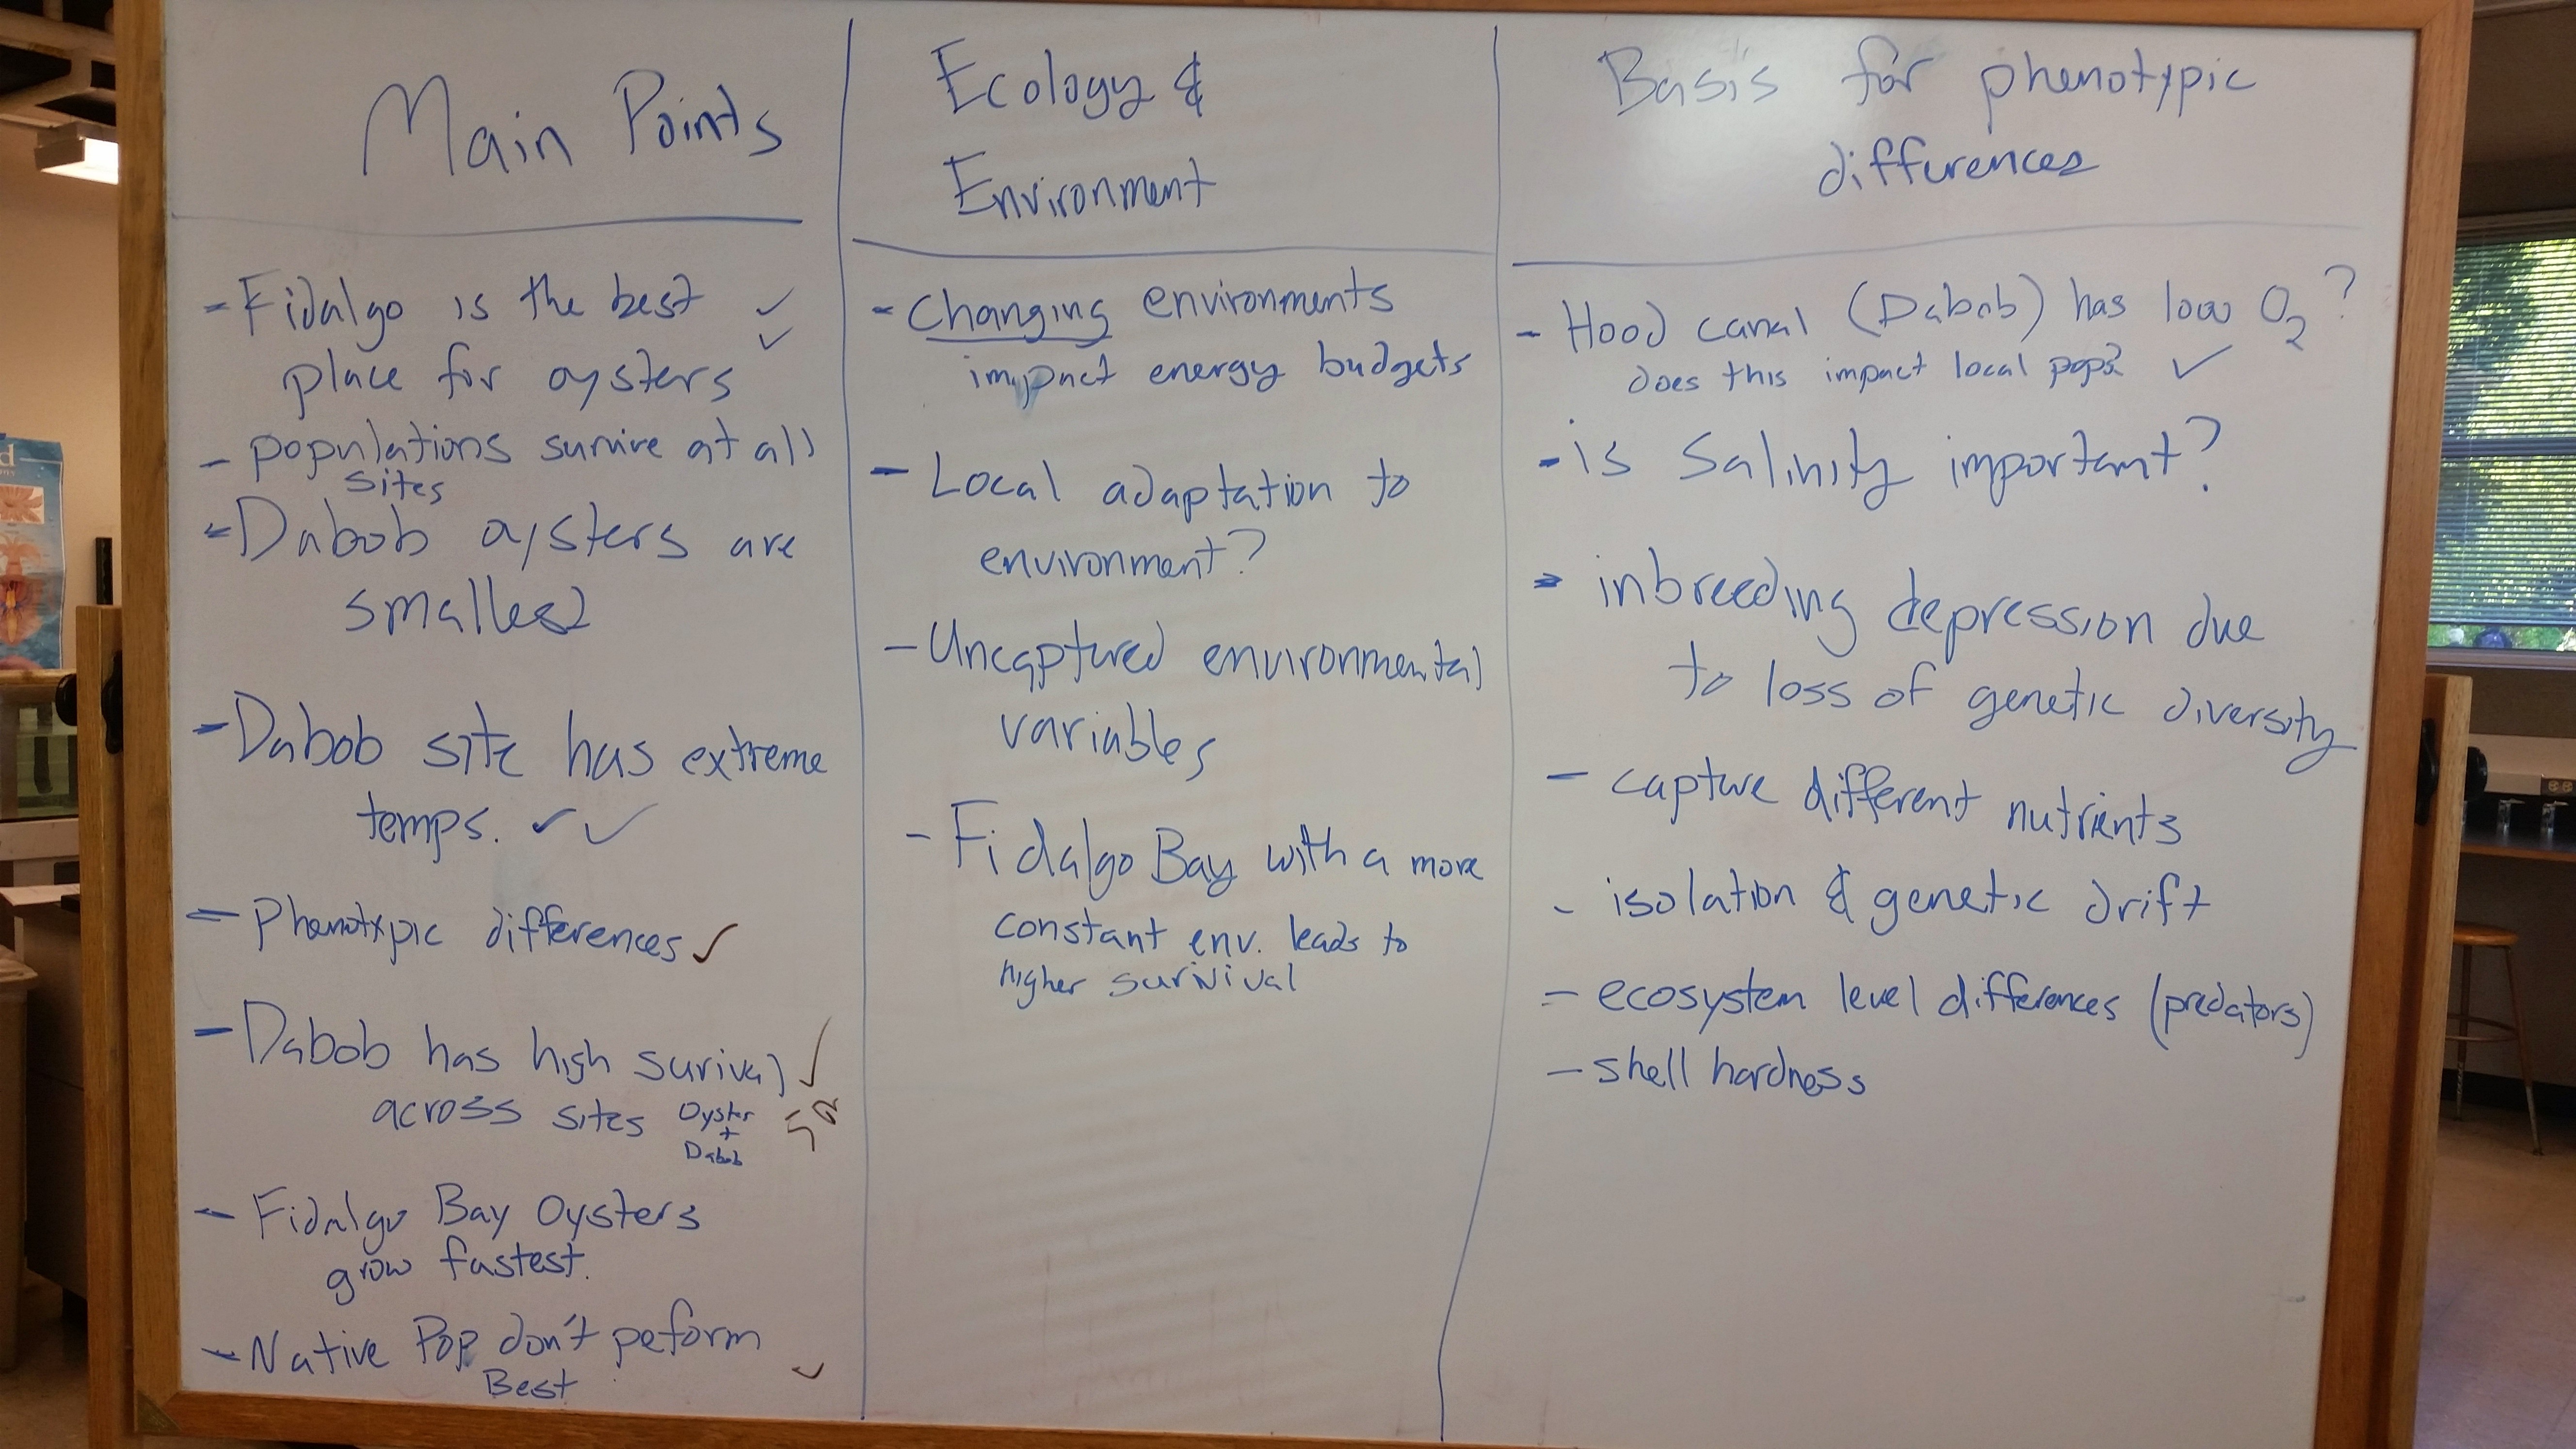 Main Points
- Fidalgo is the best ✓
✓
place for oysters
- populations survive at all
sites
- Dabob oysters are
smallest
- Dabob site has extreme
temps. ✓ ✓
- Phenotypic differences ✓
- Dabob has high surival ✓
across sites Oyster
+
Dabob
- Fidalgo Bay Oysters
grow fastest.
- Native Pop don't peform
Best ✓
Ecology &
Environment
- Changing environments
impact energy budgets
- Local adaptation to
environment?
- Uncaptured environmental
variables
- Fidalgo Bay with a more
constant env. leads to
higher survival
Basis for phenotypic
differences
- Hood canal (Dabob) has low O2?
does this impact local pops? ✓
- is Salinity important?
- inbreeding depression due
to loss of genetic diversity
- capture different nutrients
- isolation & genetic drift
- ecosystem level differences (predators)
- shell hardness